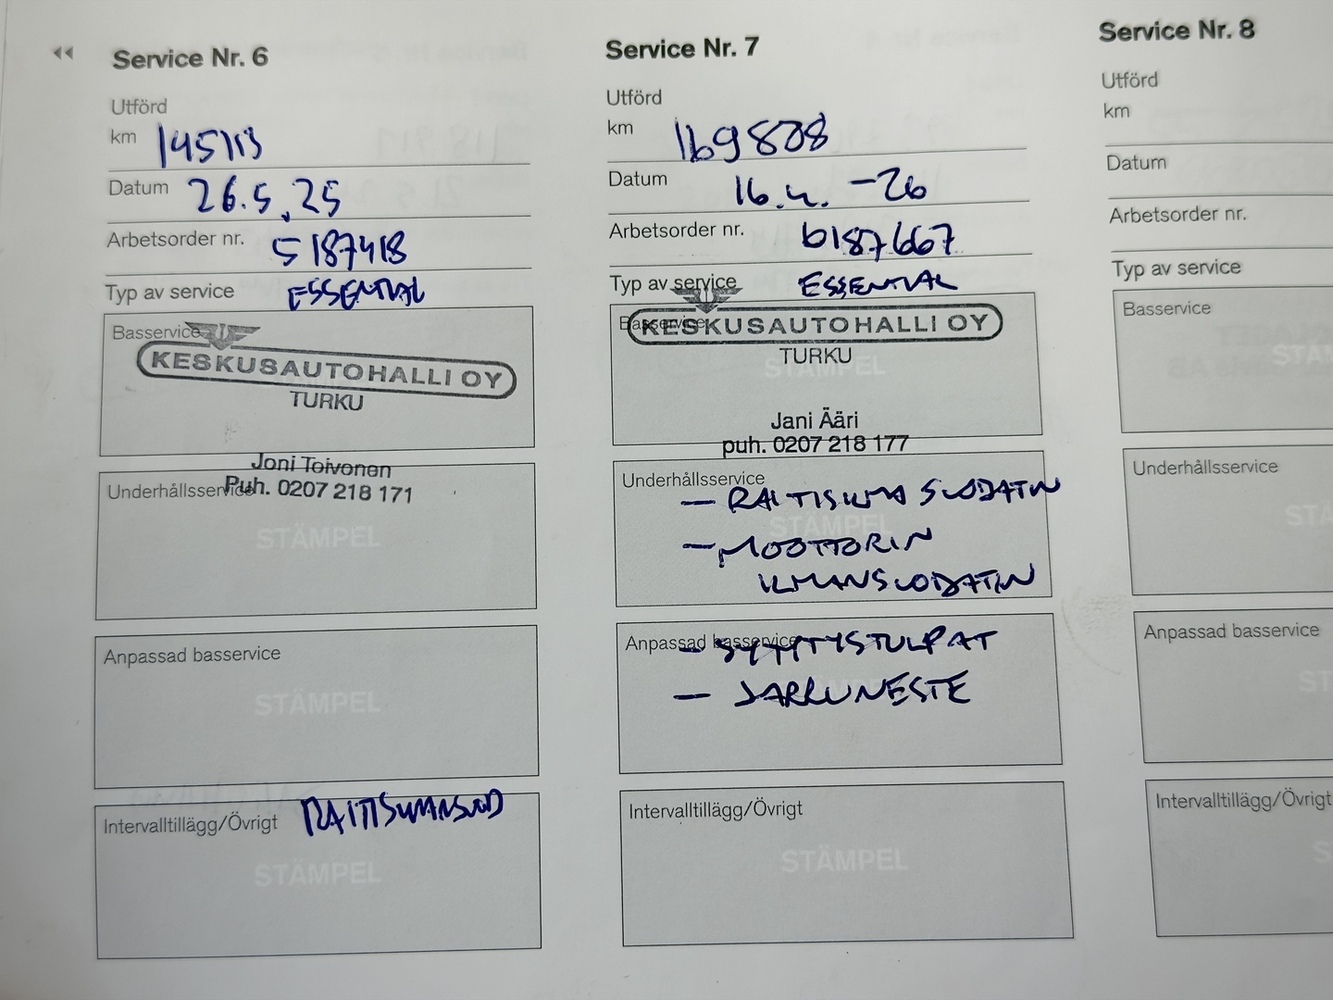 Service Nr. 6
Utförd
km 145113
Datum 26.5.25
Arbetsorder nr. 5187418
Typ av service ESSENTIAL
Basservice
KESKUSAUTOHALLI OY
TURKU
Joni Toivonen
Underhållsservice
Puh. 0207 218 171
STÄMPEL
Anpassad basservice
STÄMPEL
Intervalltillägg/Övrigt RAITISILMANSUOD
STÄMPEL
Service Nr. 7
Utförd
km 169808
Datum 16.4. -26
Arbetsorder nr. 6187667
Typ av service ESSENTIAL
Basservice
KESKUSAUTOHALLI OY
TURKU
STÄMPEL
Jani Ääri
puh. 0207 218 177
Underhållsservice
- RAITISILMA SUODATIN
STÄMPEL
- MOOTTORIN
ILMANSUODATIN
Anpassad basservice
- SYTYTYSTULPAT
- JARRUNESTE
Intervalltillägg/Övrigt
STÄMPEL
Service Nr. 8
Utförd
km
Datum
Arbetsorder nr.
Typ av service
Basservice
STÄM
Underhållsservice
STÄ
Anpassad basservice
ST
Intervalltillägg/Övrigt
S